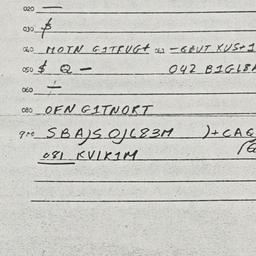 020 —
030 $
040 MOTN G1TPUG+ 062 -GBUT XUS+1
050 $ Q - 042 B1GL8A
060 ÷
080 OFN G1TNORT
900 SBAJS OJL83M )+CAG
081 KVIK1M